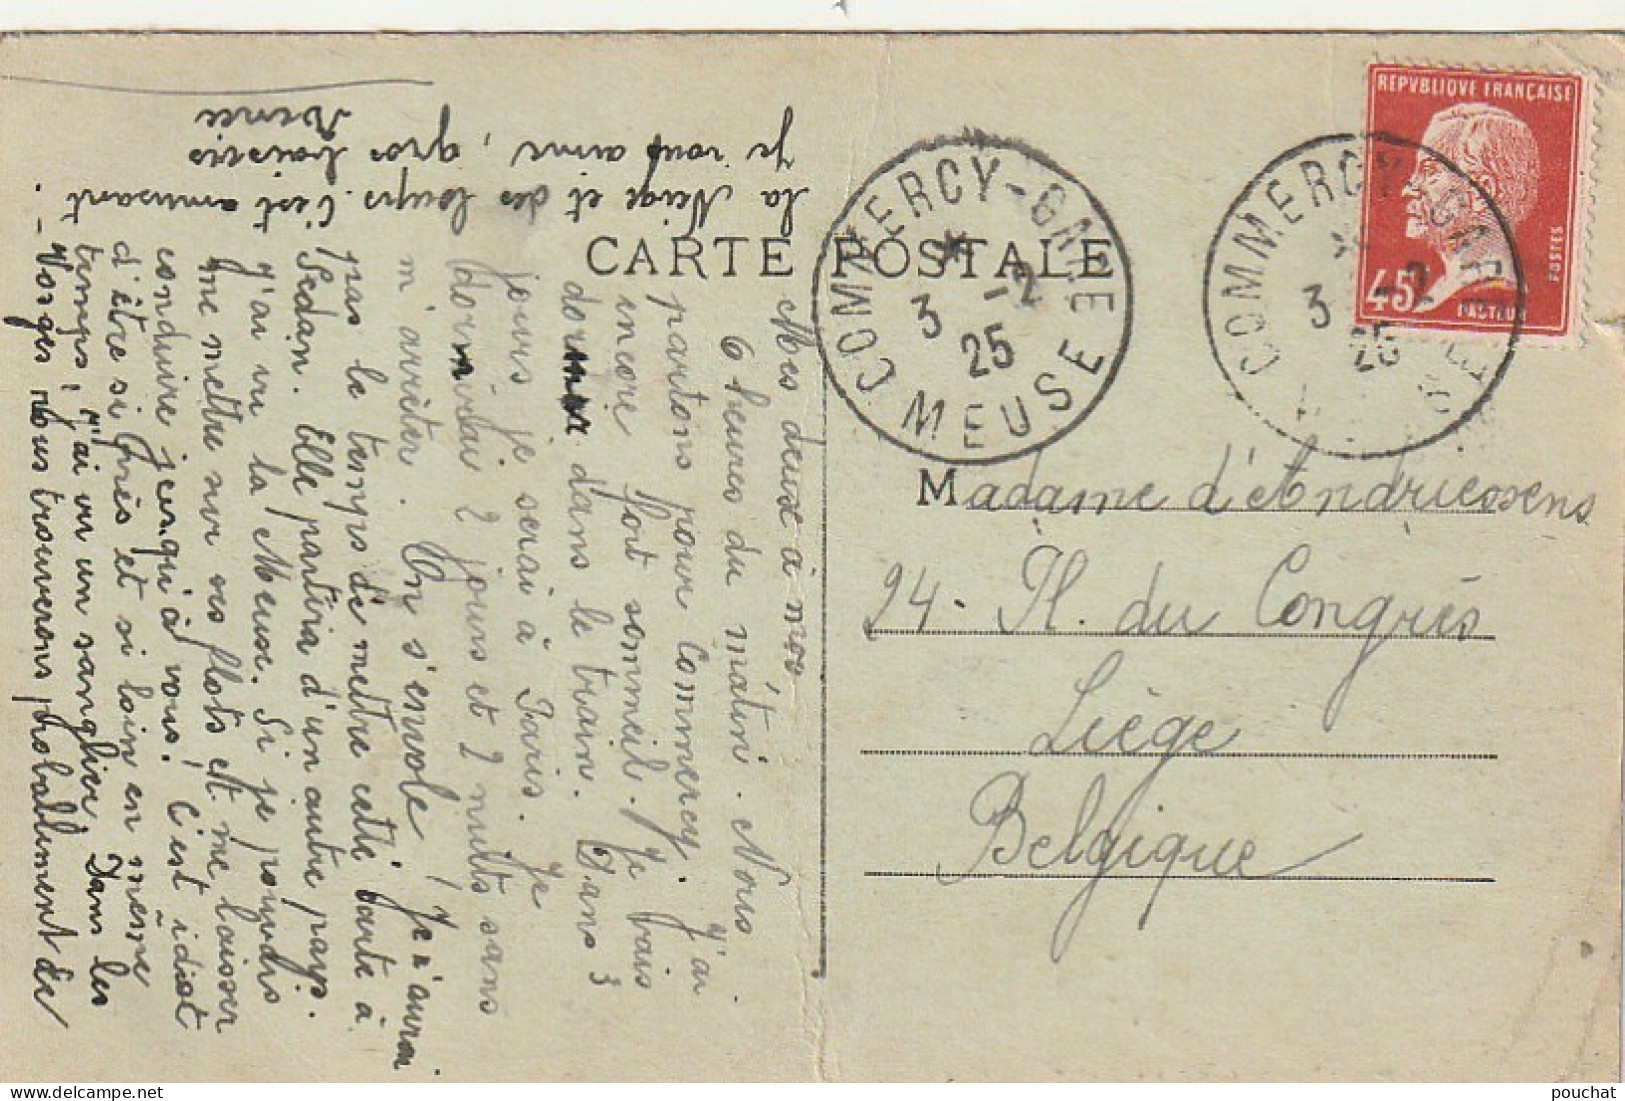 CARTE POSTALE
REPVBLIQVE FRANÇAISE
POSTES
45c
PASTEUR
COMMERCY-GARE
* 3 -2 25
MEUSE
COMMERCY-GARE
3 -2 25
Madame d'Andriessens
24. Pl. du Congrès
Liège
Belgique
Mes deux à moi,
6 heures du matin. Nous
partons pour Commercy. J'ai
encore fort sommeil. Je vais
dormir dans le train. Dans 3
jours je serai à Paris. Je
dormirai 2 jours et 2 nuits sans
m'arrêter. On s'envole! Je n'aurai
pas le temps de mettre cette carte à
Sedan. Elle partira d'un autre pays.
J'ai vu la Meuse. Si je pouvais
me mettre sur ses flots et me laisser
conduire jusqu'à vous! C'est idiot
d'être si près et si loin en même
temps! J'ai vu un sanglier Dans les
Vosges nous trouverons probablement de
la Neige et des loups. C'est amusant.
Je vous aime, gros baisers
pouchat